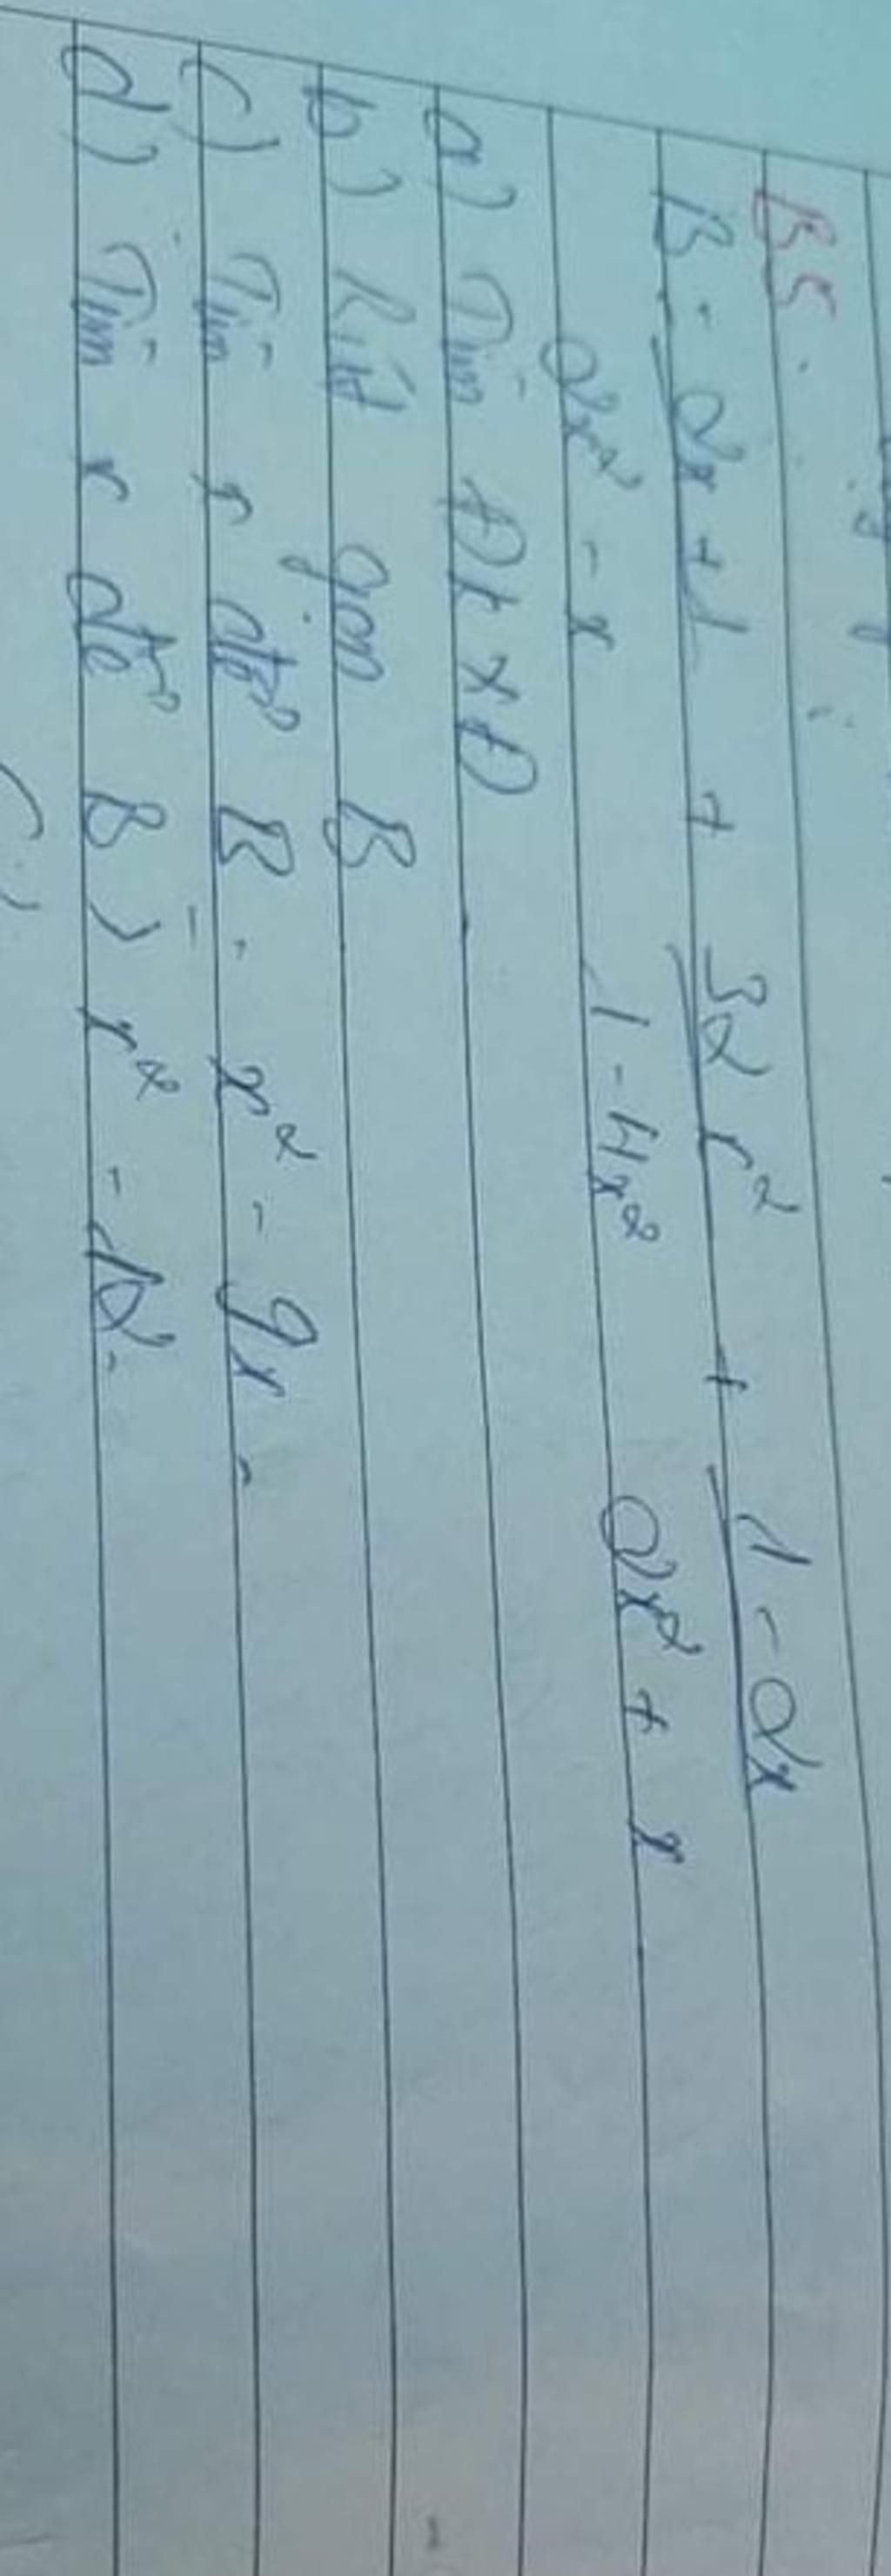 B5:
B = 2x + 1 / 2x² - x + 32x² / 1 - 4x² + 1 - 2x / 2x² + x
a) Tìm ĐKXĐ
b) Rút gọn B
c) Tìm x để B = x² - 9x.
d) Tìm x để B > x² - 12.